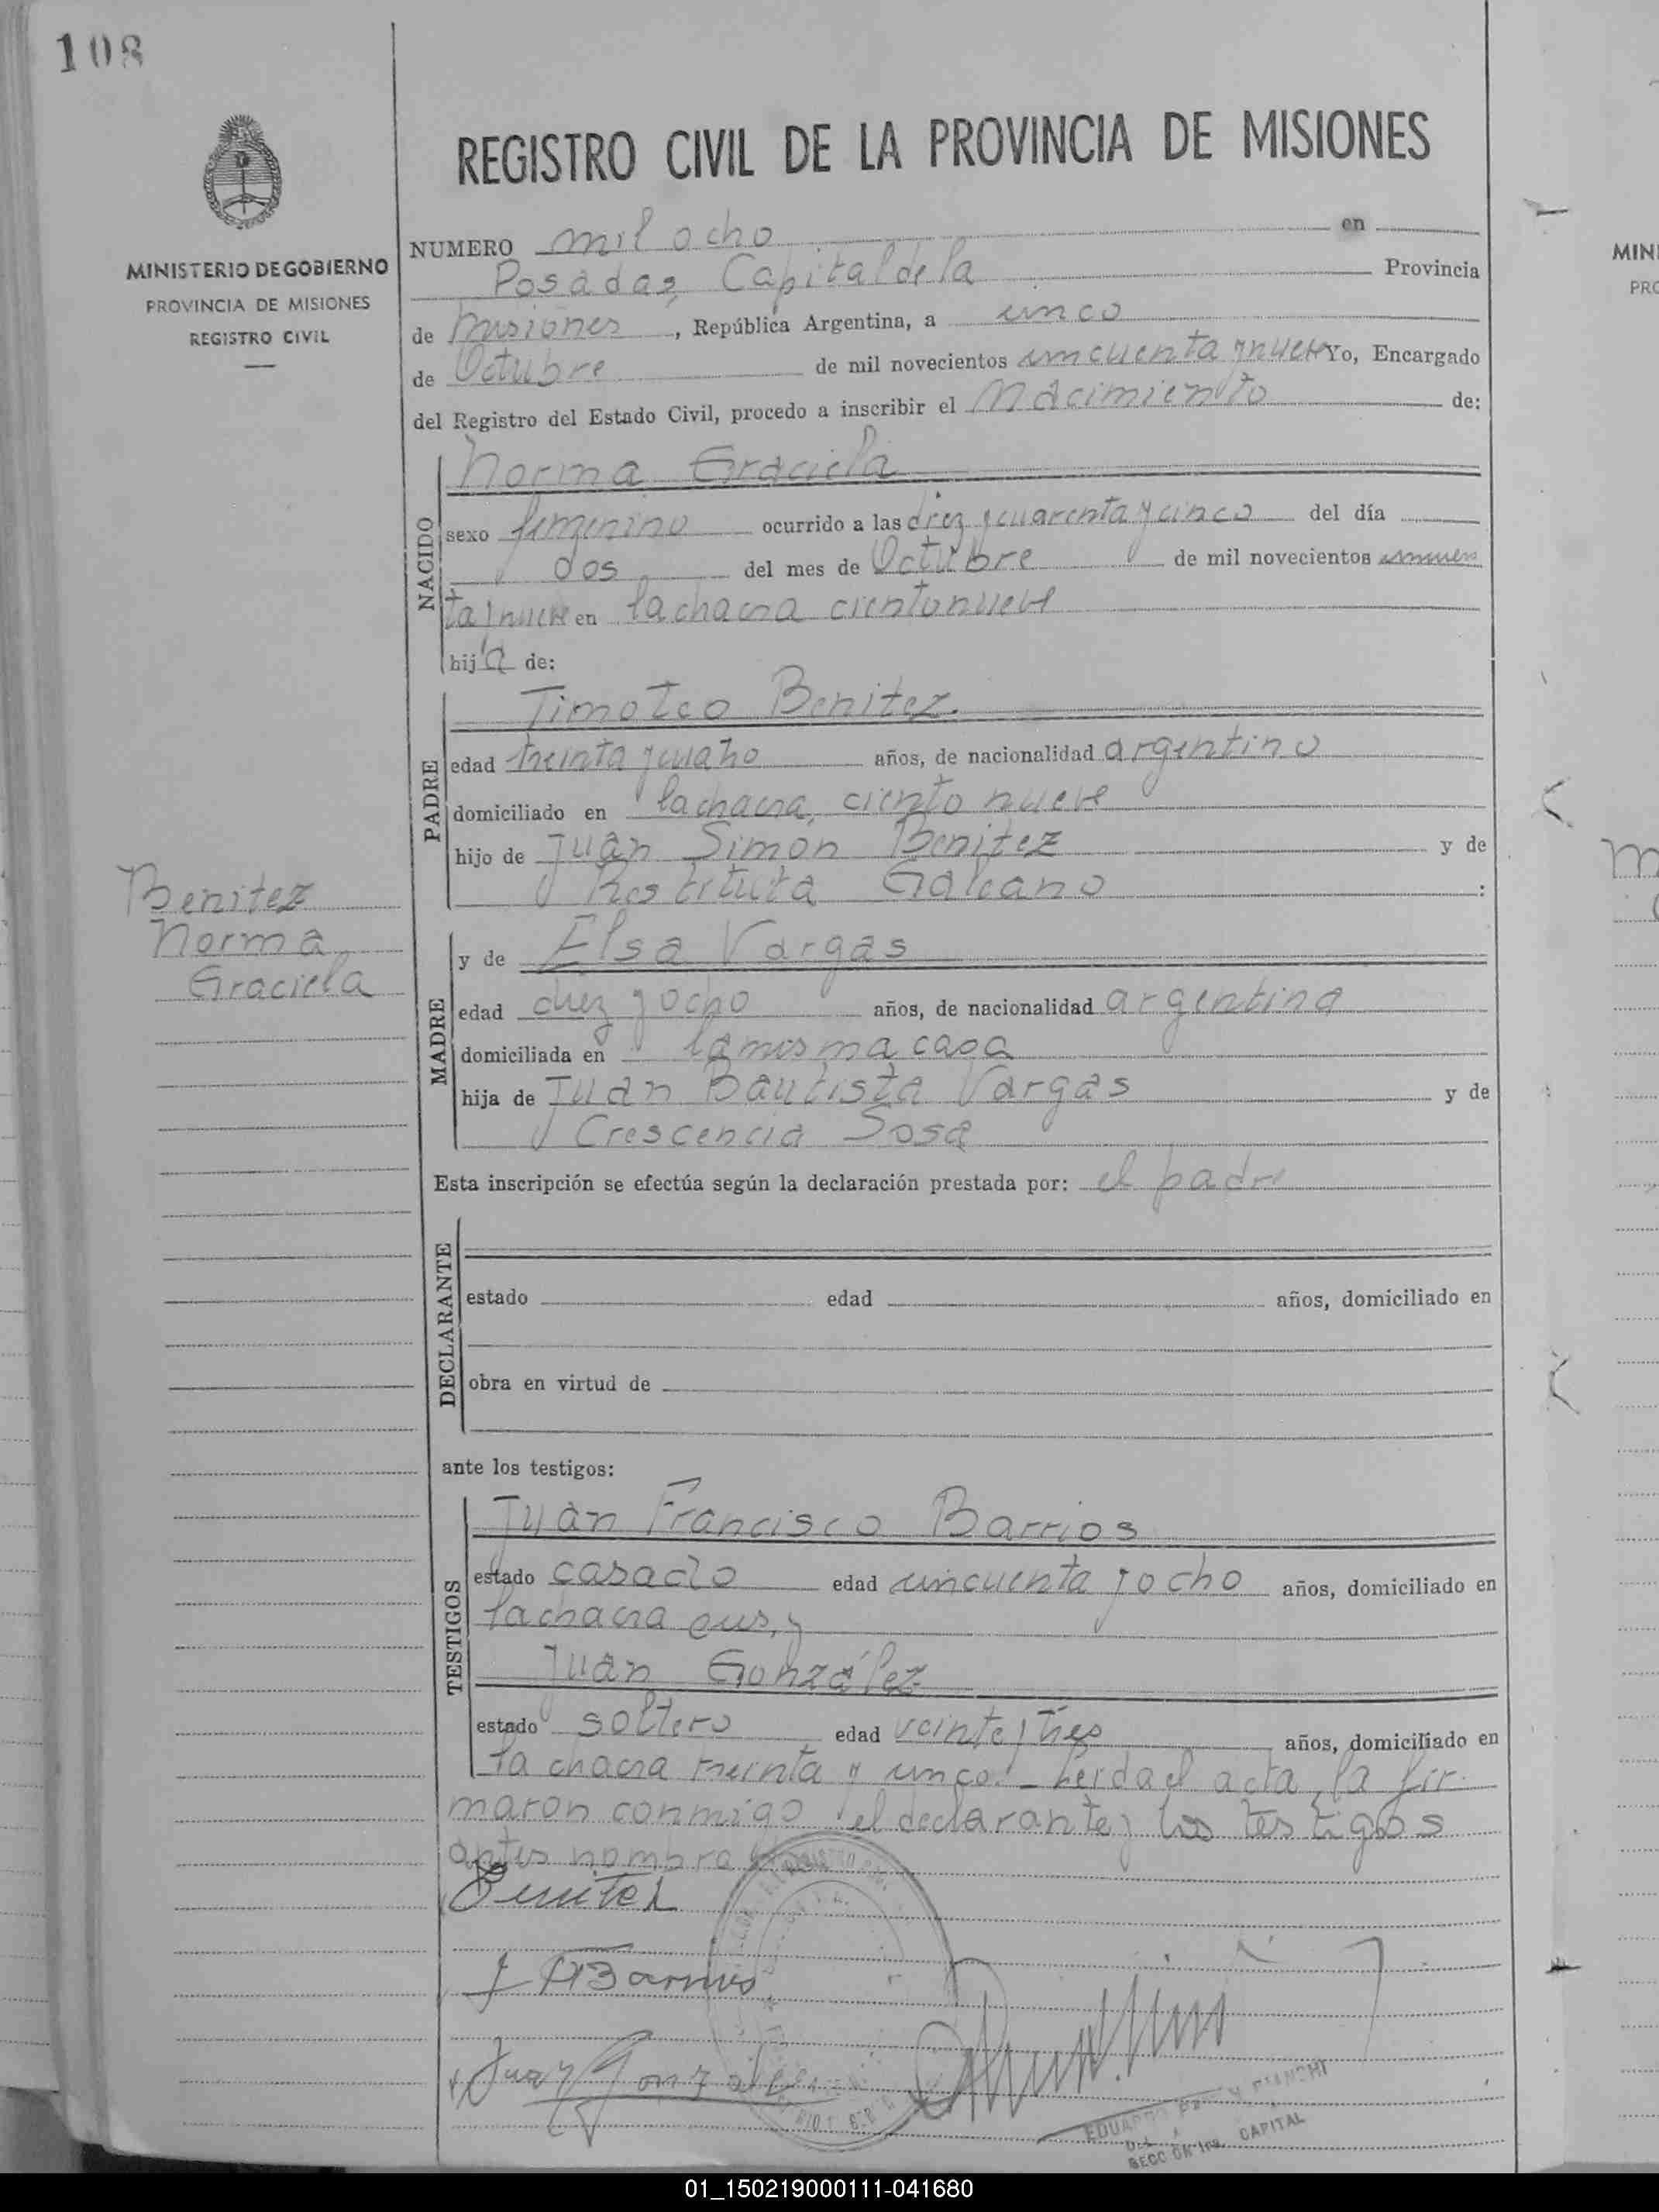 108
REGISTRO CIVIL DE LA PROVINCIA DE MISIONES
MINISTERIO DE GOBIERNO
PROVINCIA DE MISIONES
REGISTRO CIVIL
NUMERO mil ocho en
Posadas, Capital de la Provincia
de Misiones, República Argentina, a cinco
de Octubre de mil novecientos cincuenta y nueve Yo, Encargado
del Registro del Estado Civil, procedo a inscribir el Nacimiento de:
NACIDO
Norma Graciela
sexo femenino ocurrido a las diez y cuarenta y cinco del día
dos del mes de Octubre de mil novecientos cincuen
ta y nueve en la chacra ciento nueve
hija de:
PADRE
Timoteo Benitez.
edad treinta y cuatro años, de nacionalidad argentino
domiciliado en la chacra, ciento nueve
hijo de Juan Simon Benitez y de
Restituta Galeano :
Benitez
Norma
Graciela
MADRE
y de Elsa Vargas
edad diez y ocho años, de nacionalidad argentina
domiciliada en la misma casa
hija de Juan Bautista Vargas y de
Crescencia Sosa
Esta inscripción se efectúa según la declaración prestada por: el padre
DECLARANTE
estado edad años, domiciliado en
obra en virtud de
ante los testigos:
TESTIGOS
Juan Francisco Barrios
estado casado edad cincuenta y ocho años, domiciliado en
la chacra
Juan González
estado soltero edad veinte y tres años, domiciliado en
la chacra treinta y cinco. Leida el acta, la fir-
maron conmigo el declarante y los testigos
antes nombrados
Benitez
J F Barrios
Juan Gonzalez
EDUARDO BIANCHI
SECCION 1ra. CAPITAL
MIN
PRO
01_150219000111-041680